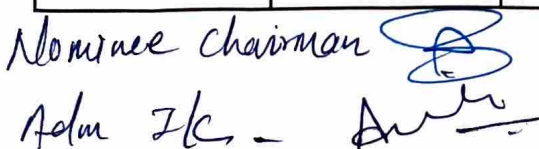 Nominee Chairman
Adm I/C -